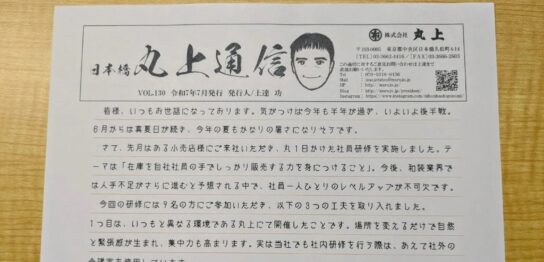 株式会社 丸上
〒103-0005 東京都中央区日本橋久松町4-14
日本橋 丸上通信
Tel
Mail
HP
Blog
Instagram
VOL.130 令和7年7月発行 発行人/上達 功
皆様、いつもお世話になっております。気がつけば今年も半年が過ぎ、いよいよ後半戦。
6月からは真夏日が続き、今年の夏もかなりの暑さになりそうです。
さて、先月はある小売店様にご来社いただき、丸1日かけた社員研修を実施しました。テ
ーマは「在庫を自社社員の手でしっかり販売する力を身につけること」。今後、和装業界で
は人手不足がさらに進むと予想される中で、社員一人ひとりのレベルアップが不可欠です。
今回の研修には9名の方にご参加いただき、以下の3つの工夫を取り入れました。
1つ目は、いつもと異なる環境である丸上にて開催したことです。場所を変えるだけで自然
と緊張感が生まれ、集中力も高まります。実は当社でも社内研修を行う際は、あえて社外の